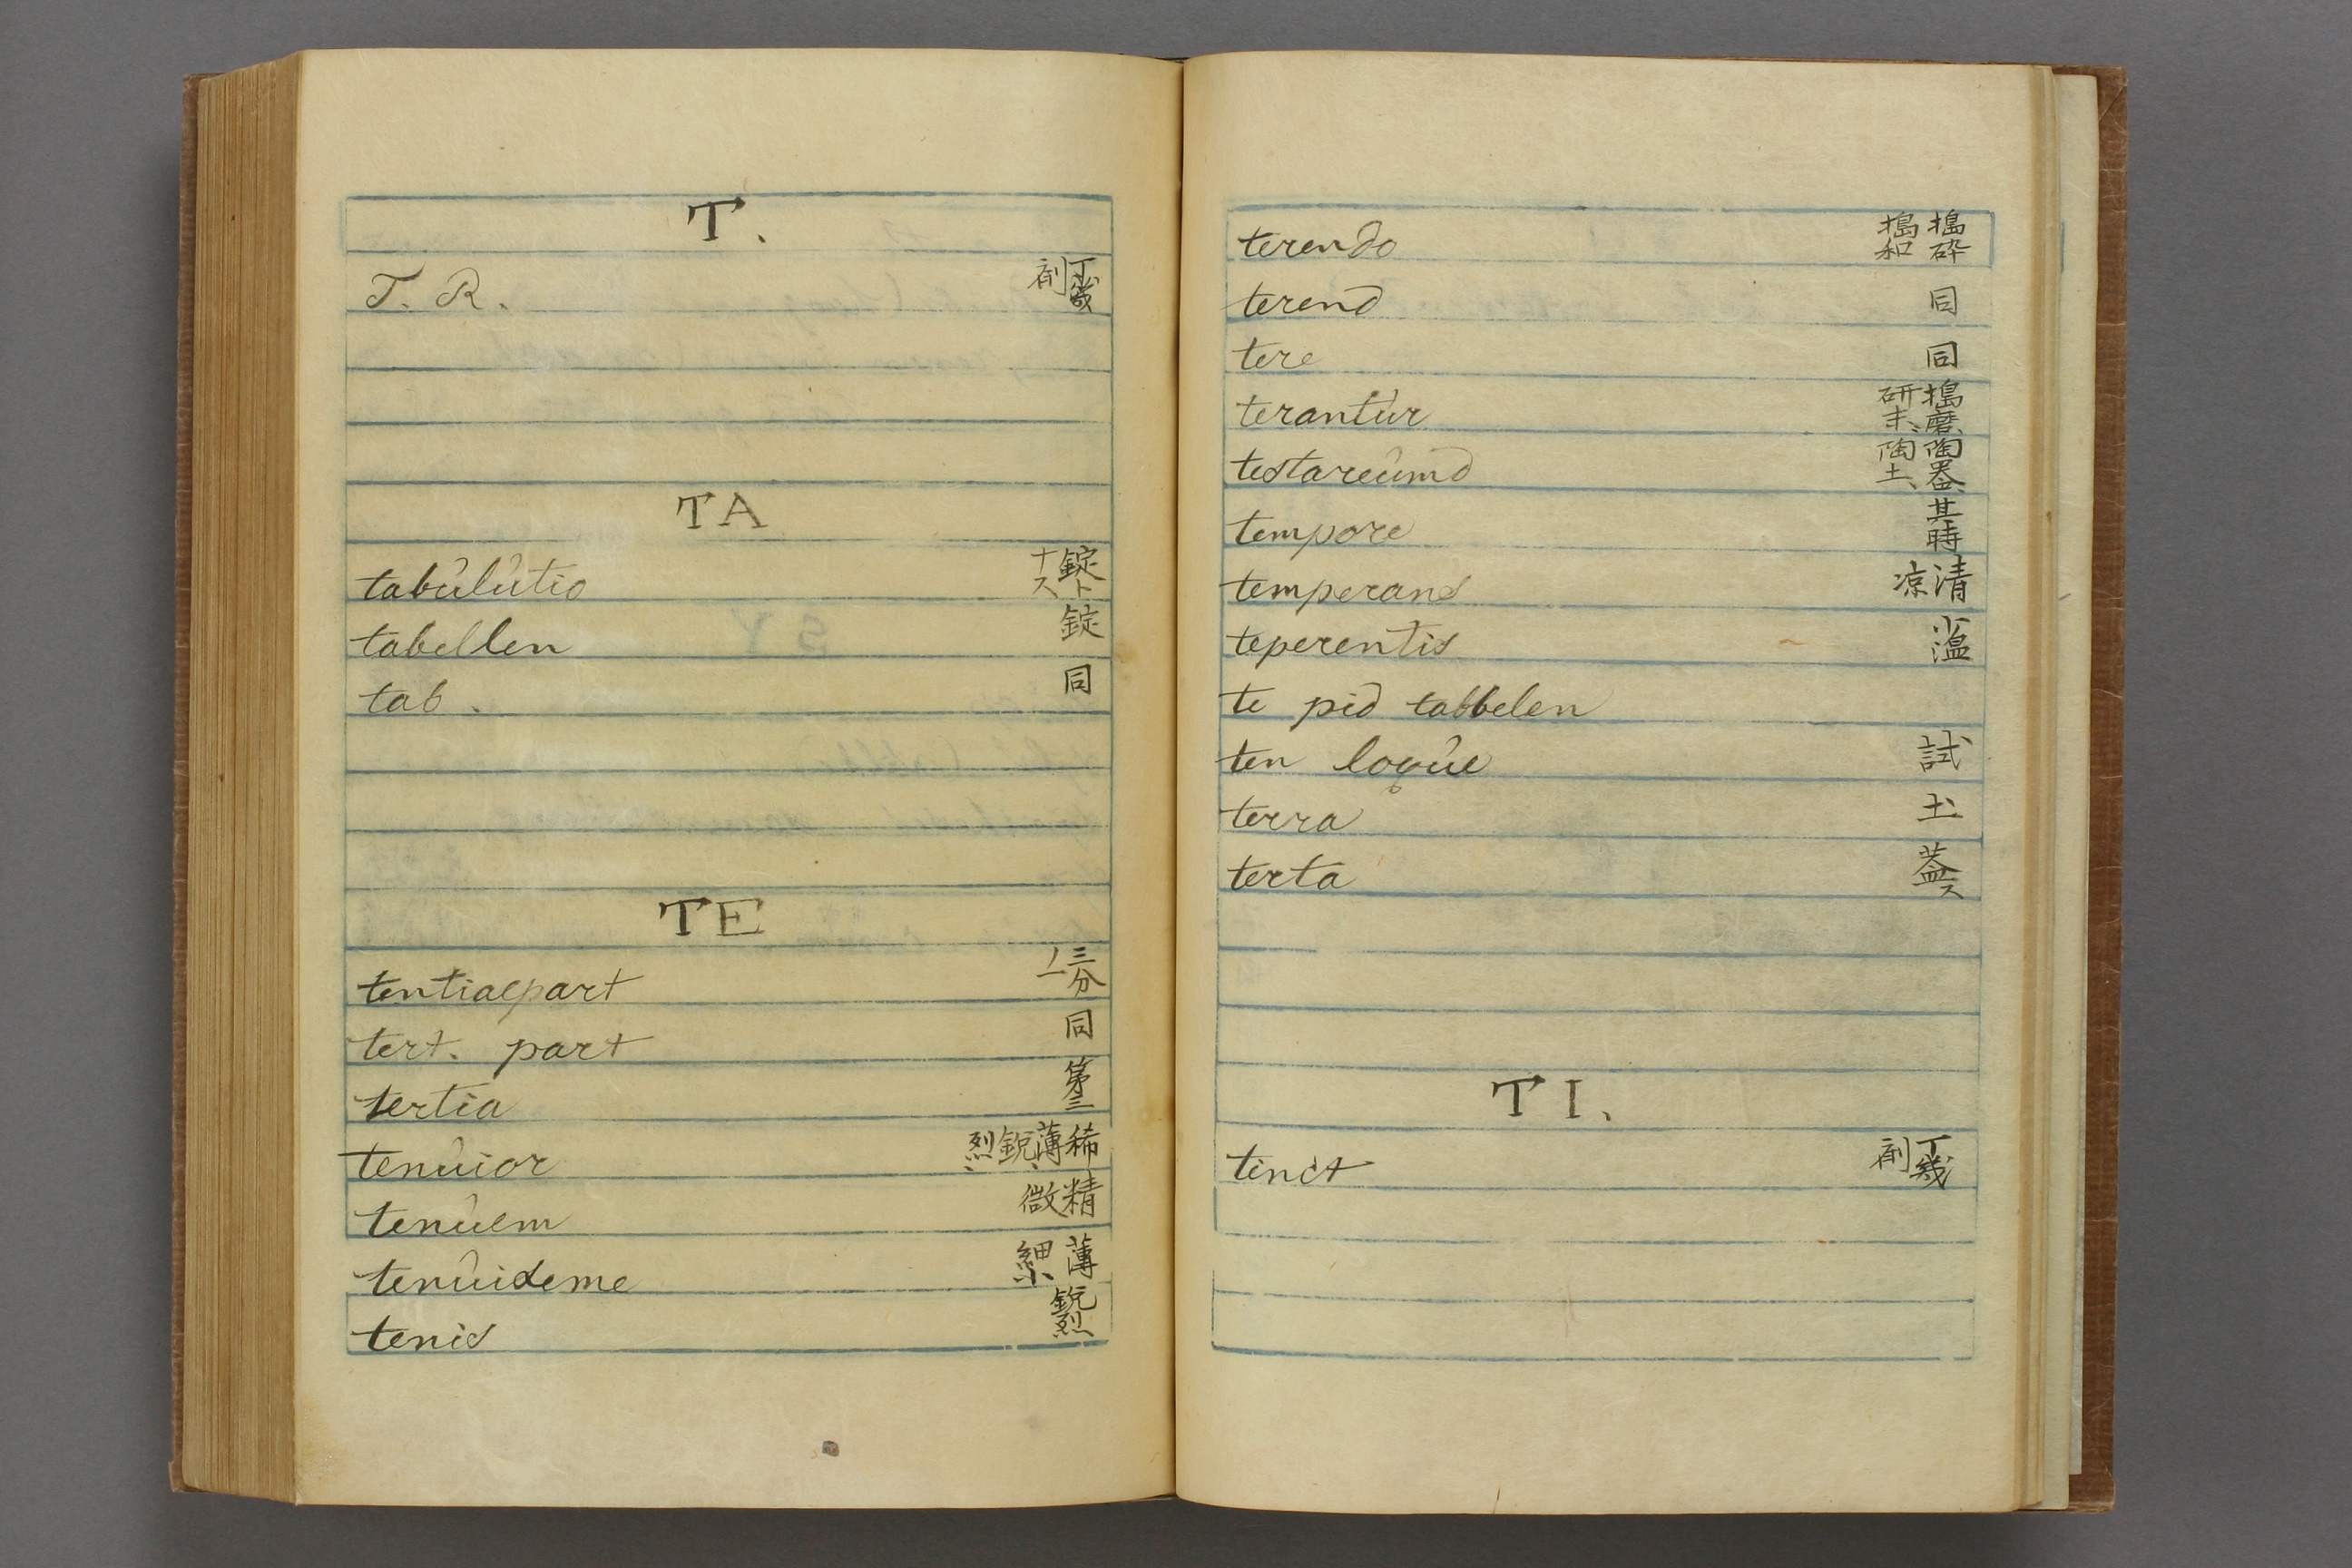 T.
T. R. 丁幾剤
TA
tabûlûtio 錠トナス
tabellen 錠
tab. 同
TE
tentiaepart 三分ノ一
tert. part 同
tertia 第三
tenûior 稀薄、鋭烈、
tenûem 精微
tenûideme 薄細小
tenis 鋭烈
terendo 搗砕搗和
terend 同
tere 同
terantûr 搗磨、研末、
testareûmd 陶器、陶土、
tempore 其時
temperans 清凉
teperentis 小温
te pid tabbelen
ten loqûe 試
terra 土
terta 蓋ス
TI.
tinct 丁幾剤